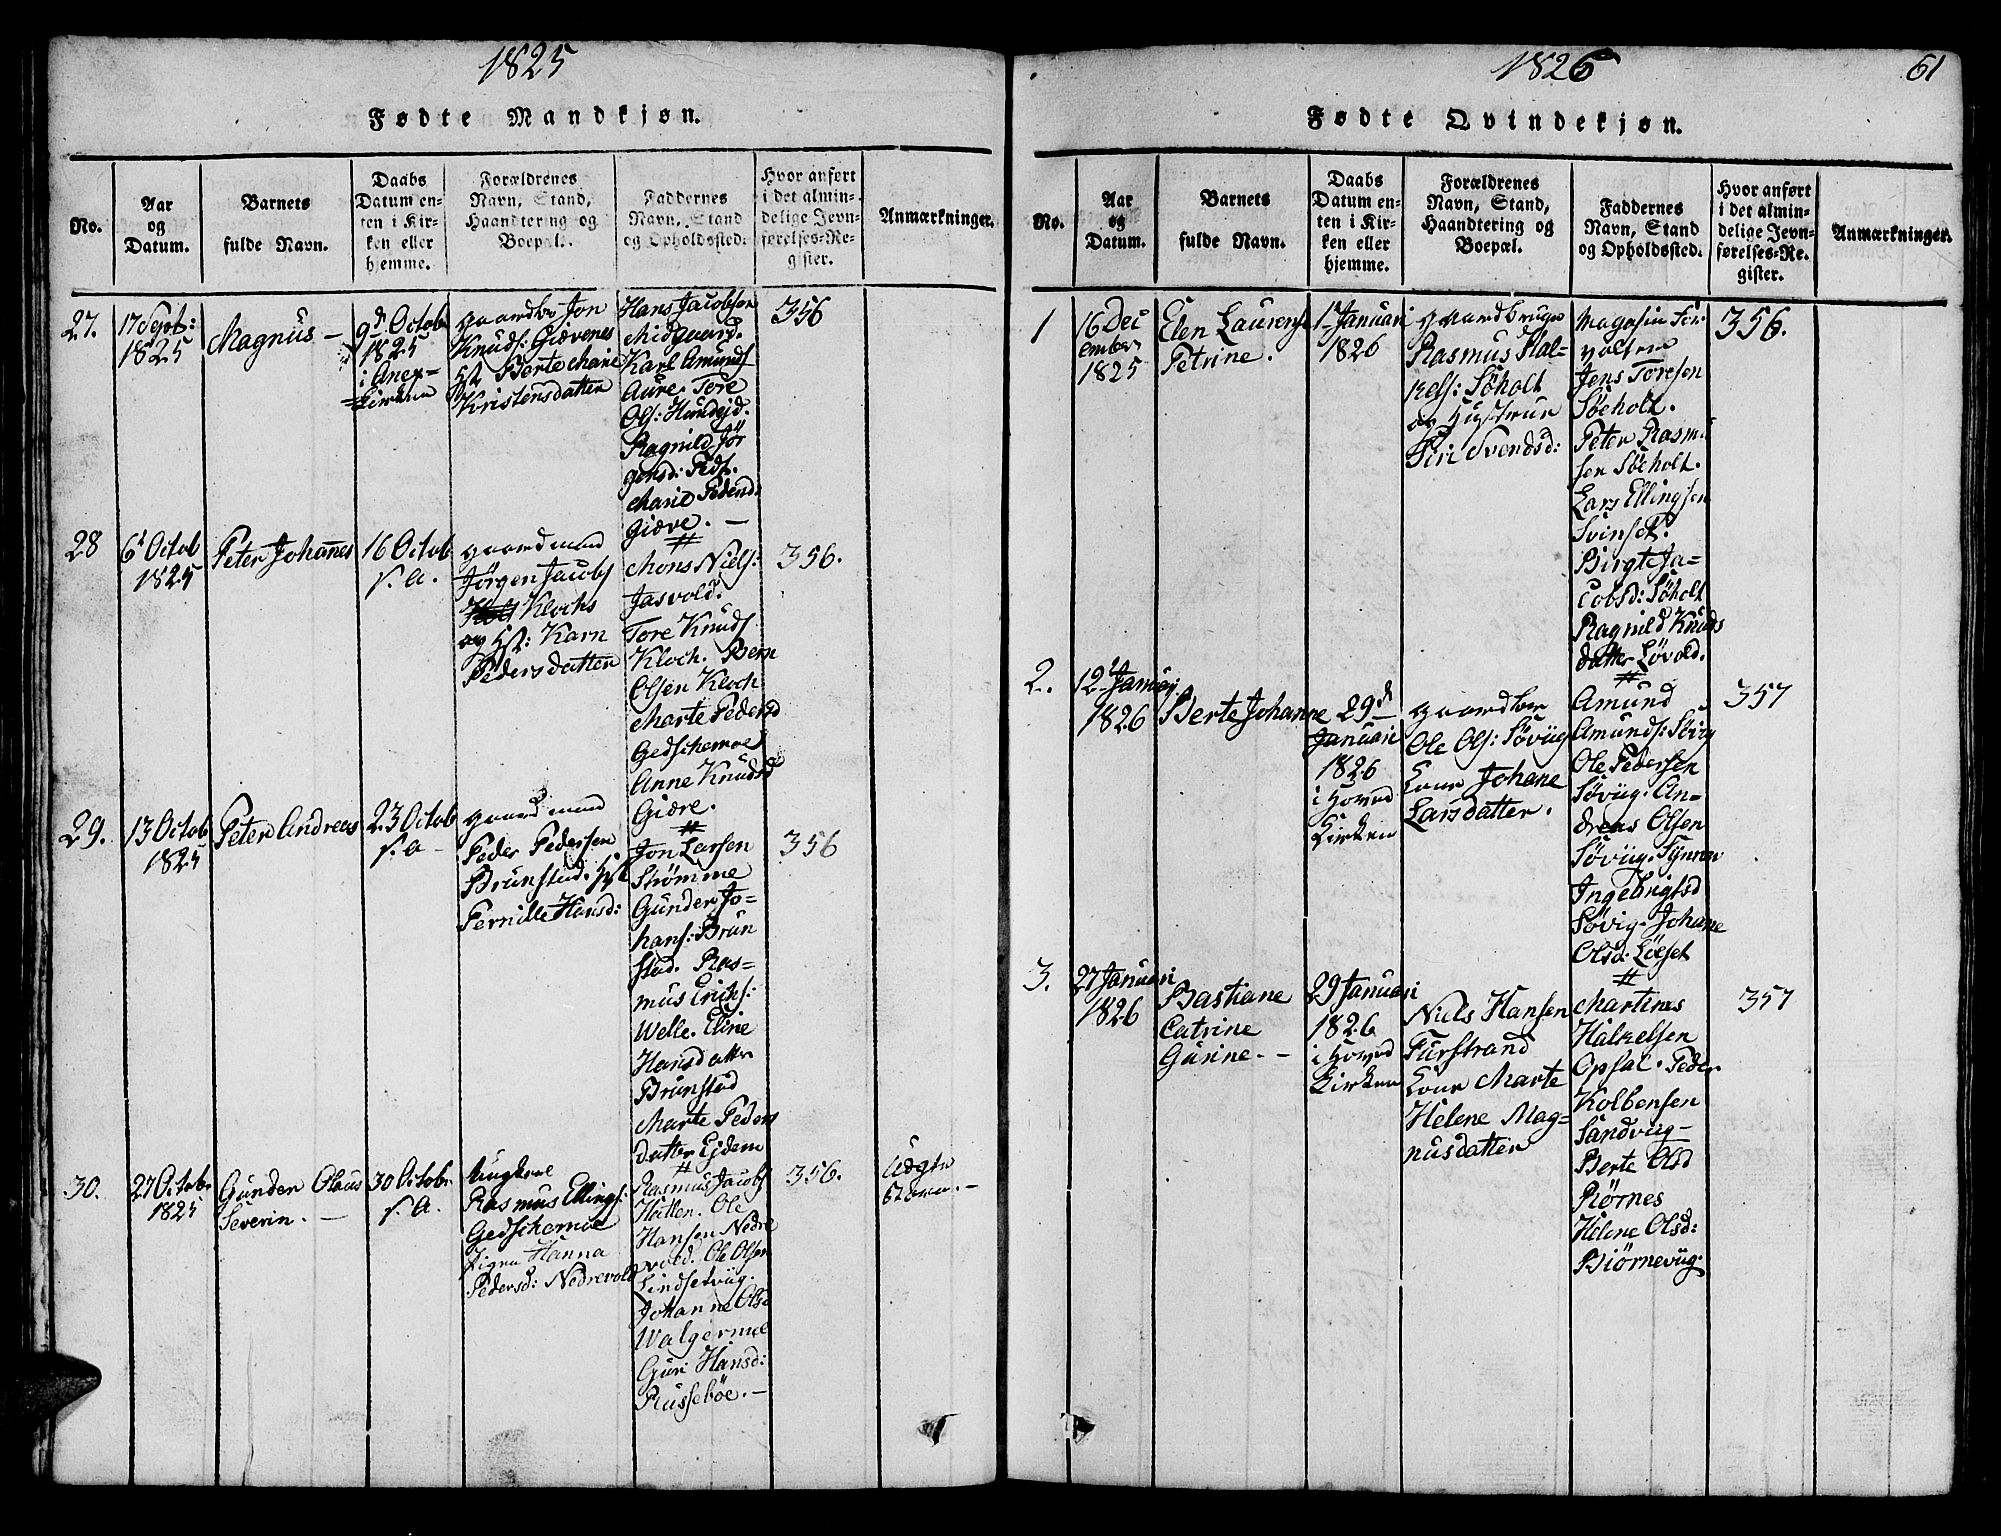 1825
Fødte Mandkjøn.
No.
Aar
og
Datum.
Barnets
fulde Navn.
Daabs
Datum en-
ten i Kir-
ken eller
hjemme.
Forældrenes
Navn, Stand,
Haandtering og
Boepæl.
Faddernes
Navn, Stand
og Opholdssted.
Hvor anført
i det almin-
delige Jevn-
førelses-Re-
gister.
Anmærkninger.
27.
17 Sept:
1825
Magnus –
9d Octob
1825
i Anex-
Kirken
gaardbr Jon
Knuds: Giævenes
Hst Berte Marie
Kristensdatter
Hans Jacobsen
Midgaard.
Karl Amunds
Aure. Tore
Ols: Hundejd.
Ragnild Jør
gensd:
Marie Pedersd:
Giære. –
356
28
6t Octob
1825
Peter Johannes
16 Octob
s. a.
gaardmand
Jørgen Jacobs
Klochs
og Hst: Karn
Pedersdatter
Mons Niels:
Jasvold.
Tore Knuds
Kloch. Bern
Olsen Kloch
Marte Pedersd
Gedschemoe
Anne Knudsd
Giære.
356.
29.
13 Octob
1825
Peter Andreas
23 Octob
s. a –
gaardmand
Peder Pedersen
Brunstad. Hst
Pernille Hansd:
Jon Larsen
Strømme
Gunder Jo-
hans: Brun
stad. Ras-
mus Erichs:
Welle. Eline
Hansdatter
Brunstad
Marte Peders
datter Ejdem
356
30.
27 Octobr
1825
Gunder Olaus
Severin. –
30 Octobr
s. a.
Ungkarl
Rasmus Ellings:
Gedschemoe
Pigen Hanna
Pedersd: Nedrevold
Rasmus Jacobs
Hatten. Ole
Hansen Nedre
vold. Ole Olsen
Lindsetvüg.
Johanne Olsd
Walgermoe
Guri Hansd:
Russeböe. –
356.
Uægte
Barn. –
1826
61
Fødte Qvindekjøn.
No.
Aar
og
Datum.
Barnets
fulde Navn.
Daabs
Datum en-
ten i Kir-
ken eller
hjemme.
Forældrenes
Navn, Stand,
Haandtering og
Boepæl.
Faddernes
Navn, Stand
og Opholdssted.
Hvor anført
i det almin-
delige Jevn-
førelses-Re-
gister.
Anmærkninger.
1
16 Dec
ember
1825
Elen Laurense
Petrine.
1 Januari
1826
gaardbruger
Rasmus Hal-
kels: Söholt
og Hustrue
Siri Svendsd:
Magasin For
valter
Jens Toresen
Söeholt.
Peter Rasmu
sen Söeholt.
Lars Ellingsen
Svinset.
Birgte Ja-
cobsd: Söholt
Ragnild Knuds
datter Løvold.
356.
2.
12t Januari
1826
Berte Johanne
29d
Januari
1826
i Hoved
Kirken
gaardbr
Ole Ols: Søvüg
Kone Johane
Larsdatter.
Amund
Amunds: Søvig
Ole Pedersen
Søvüg. An-
dreas Olsen
Søvüg. Synnev
Ingebrigtsd
Søvig. Johane
Olsd: Løeset
357
3.
27 Januari
1826
Bastiane
Catrine
Gurine. –
29 Januari
1826
i Hoved
Kirken
Niels Hansen
Furstrand
Kone Marte
Helene Mag-
nusdatter
Martines
Halkelsen
Opsal. Peder
Kolbensen
Sandvug –
Berte Olsd
Rørnes
Helene Olsd:
Biørnevüg
357